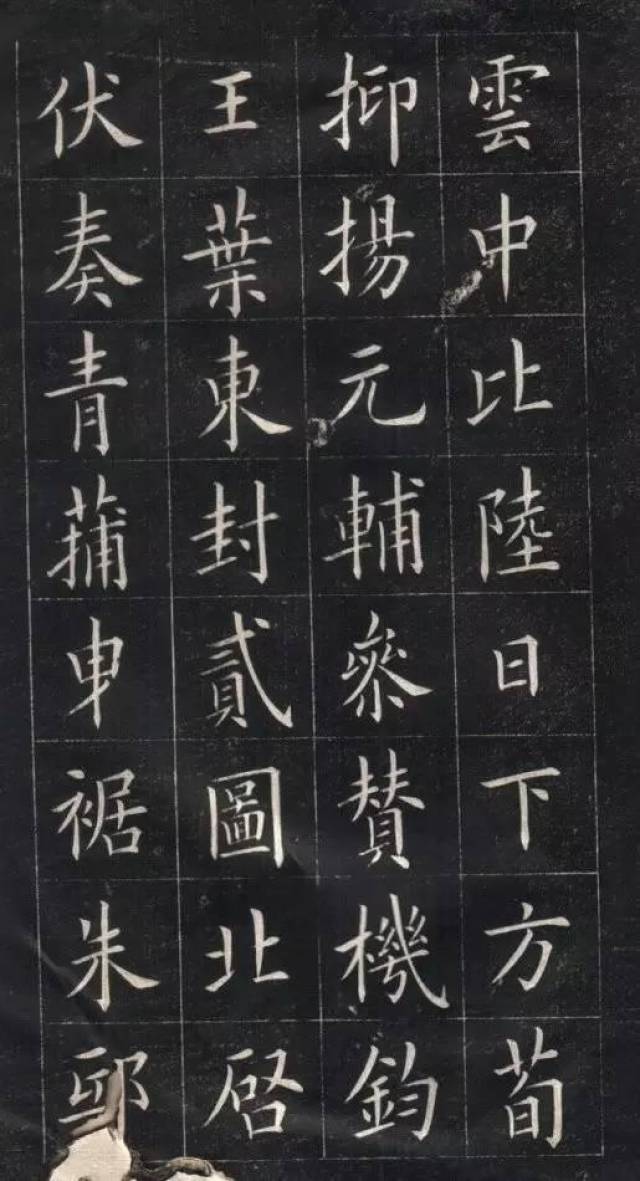 雲中比陸日下方荀
抑揚元輔叅賛機鈞
王葉東封貳圖北啓
伏奏青蒲曳裾朱邸